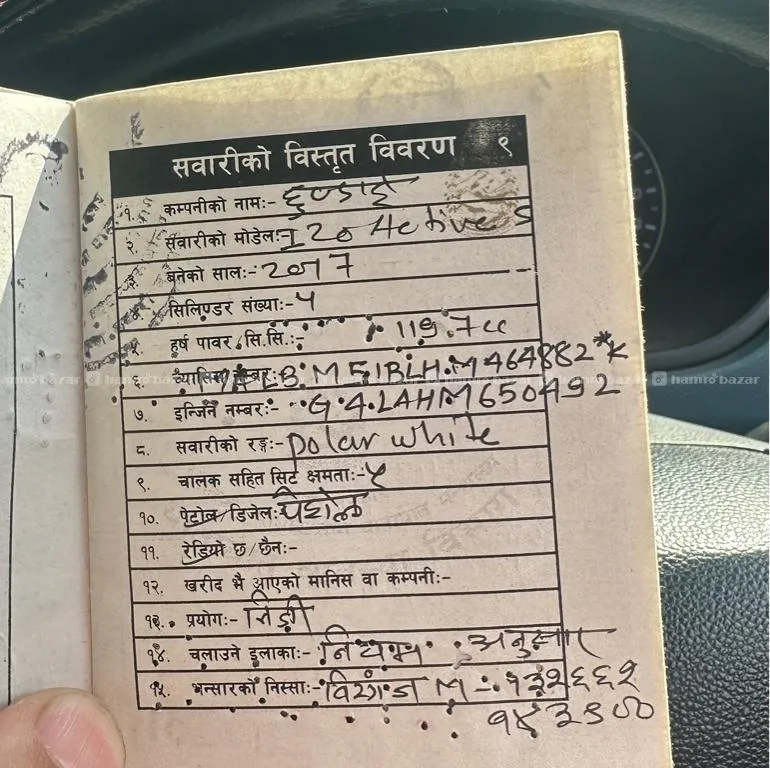 सवारीको विस्तृत विवरण ९
१. कम्पनीको नाम:- हुण्डाई
२. सवारीको मोडेल:- I 20 Active S
३. बनेको साल:- 2017
४. सिलिण्डर संख्या:- ४
५. हर्ष पावर, सि.सि.:- 1197cc
६. च्यासिस नम्बर:- MALBM51BLHM464882*K
hamrobazar hamrobazar
७. इन्जिन नम्बर:- G4LAHM650492
८. सवारीको रङ्ग:- polar white
९. चालक सहित सिट क्षमता:- ५
१०. पेट्रोल/डिजेल:- पेट्रोल
११. रेडियो छ/छैन:-
१२. खरीद भै आएको मानिस वा कम्पनी:-
१३. प्रयोग:- निजी
१४. चलाउने इलाका:- नियम अनुसार
१५. भन्सारको निस्सा:- M-